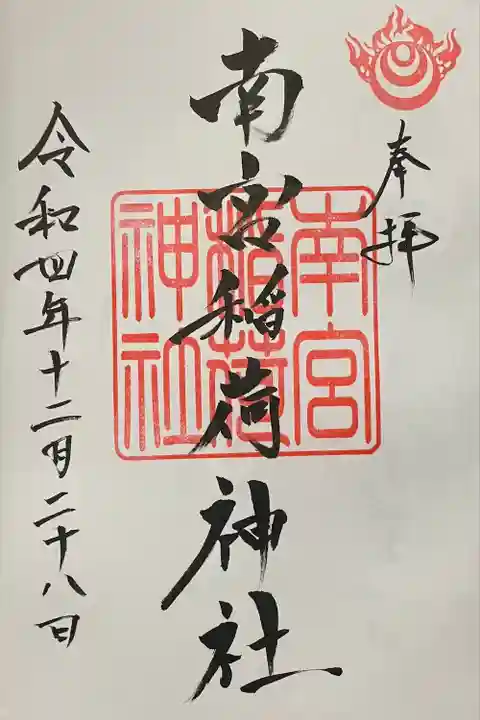 奉拝
南宮
稲荷
神社
南宮稲荷神社
令和四年十二月二十八日